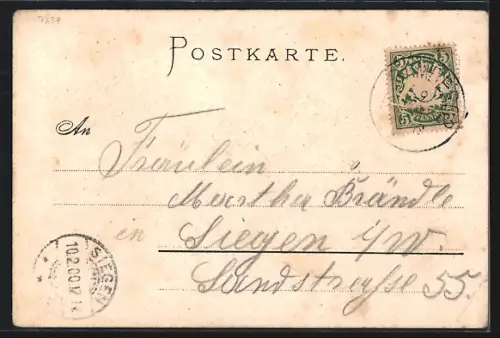 POSTKARTE.
An Fräulein
Martha Brändle
in Siegen i/W.
Sandstraße 55.
SIEGEN
10.2.00.12
5 5
5 5